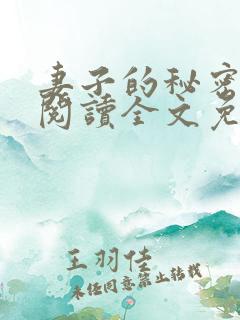 妻子的秘密
閱讀全文免
王羽佳
未经同意禁止转载